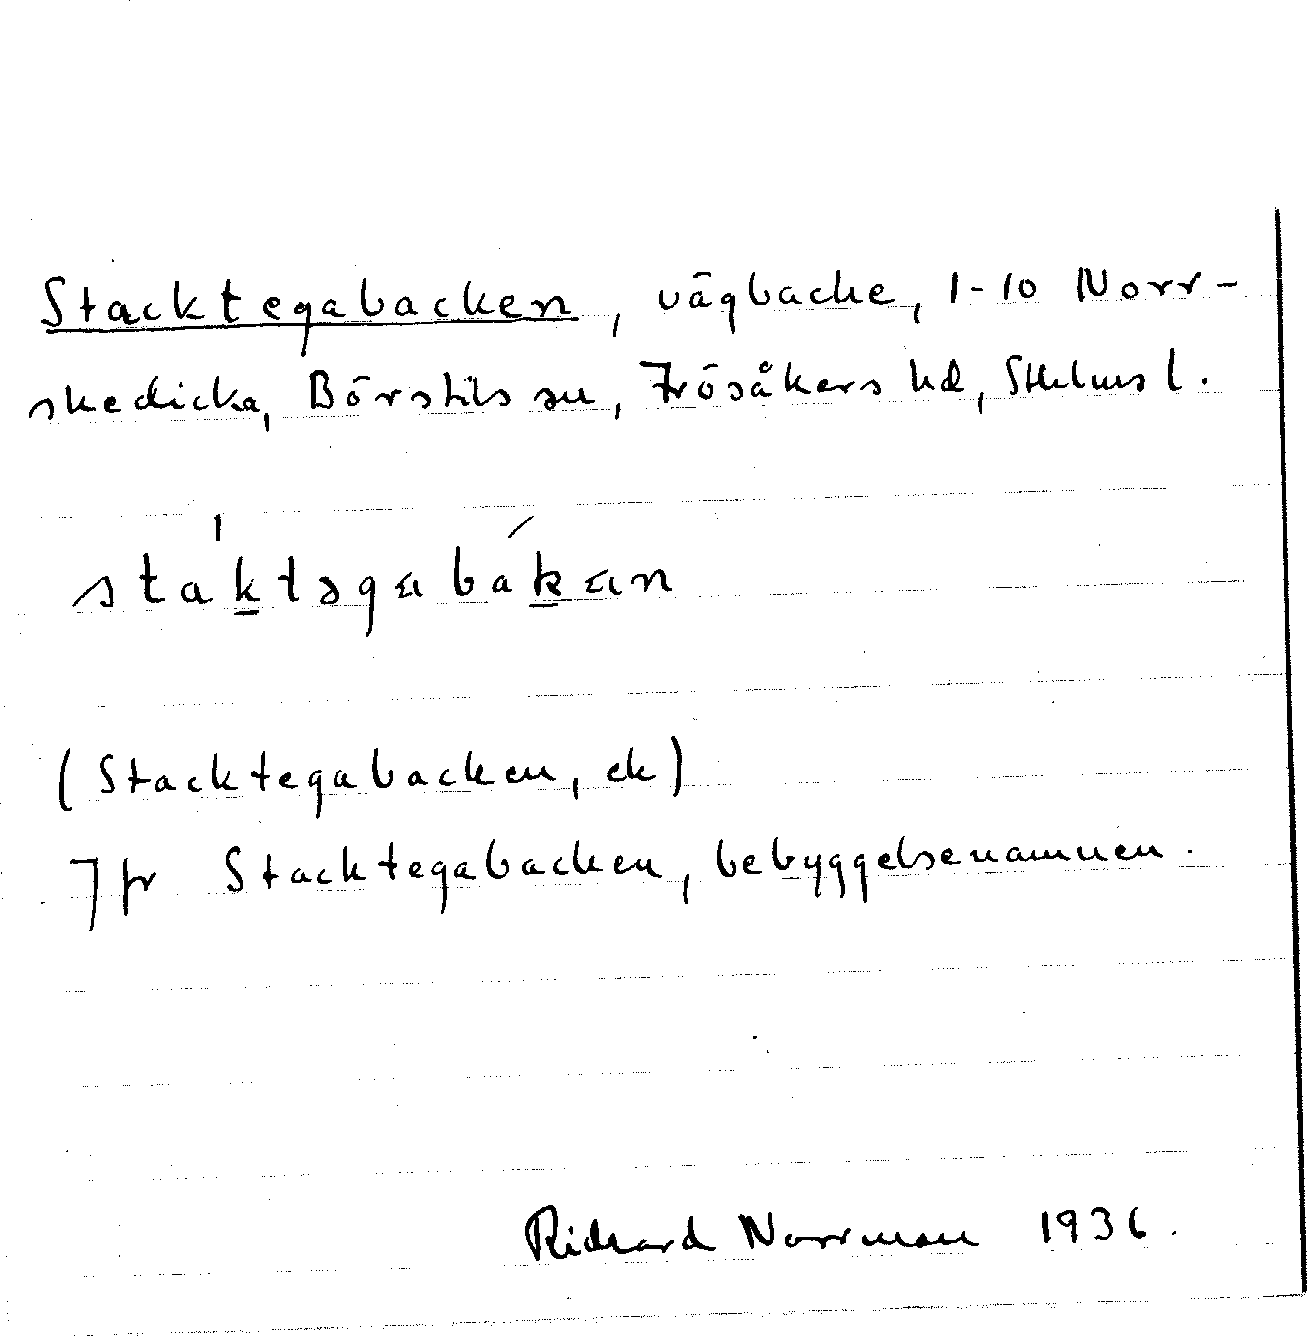 Stacktegabacken, vägbacke, 1-10 Norr-
skedicka, Börstils sn, Frösåkers hd, Sthlms l.
stáktəgabàkan
(Stacktegabacken, ek)
Jfr Stacktegabacken, bebyggelsenamnen.
Richard Norrman 1936.